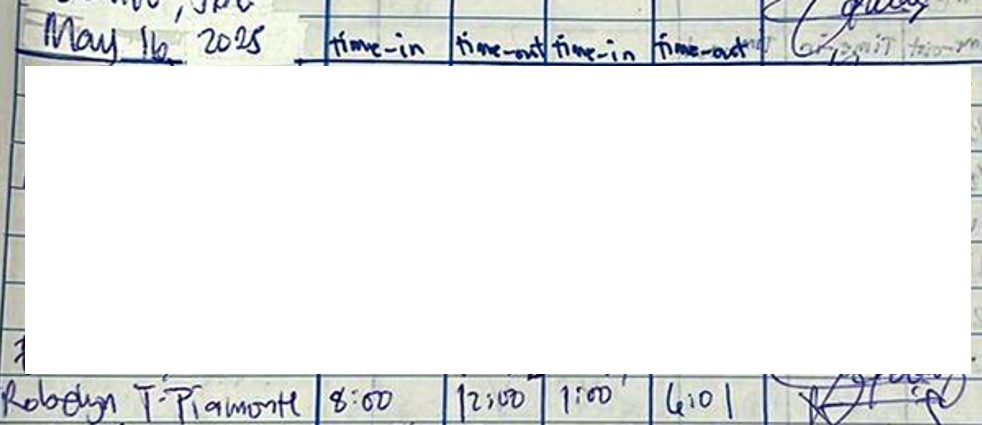 May 16, 2025 time-in time-out time-in time-out
T. Piamonte 8:00 12:00 1:00 6:01